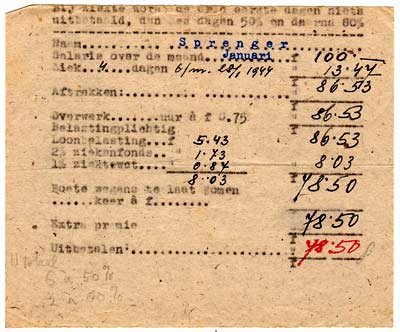 Bij ziekte wordt de eerste dagen niets
uitbetaald, dan zes dagen 50% en daarna 80%
Naam.... Sprenger
Salaris over de maand.. Januari f 100 —
Ziek..4....dagen 6/m. 1944 13.47
Aftrekken: 86.53
Overwerk......uur à f 0.75 86.53
Belastingplichtig 86.53
Loonbelasting...f 5.43
2% ziekenfonds.. 1.73 8.03
1% ziektewet.... 0.87
8.03 78.50
Boete wegens te laat komen
.....keer à f........
78.50
Extra premie
Uitbetalen: 78.50
6 à 50%